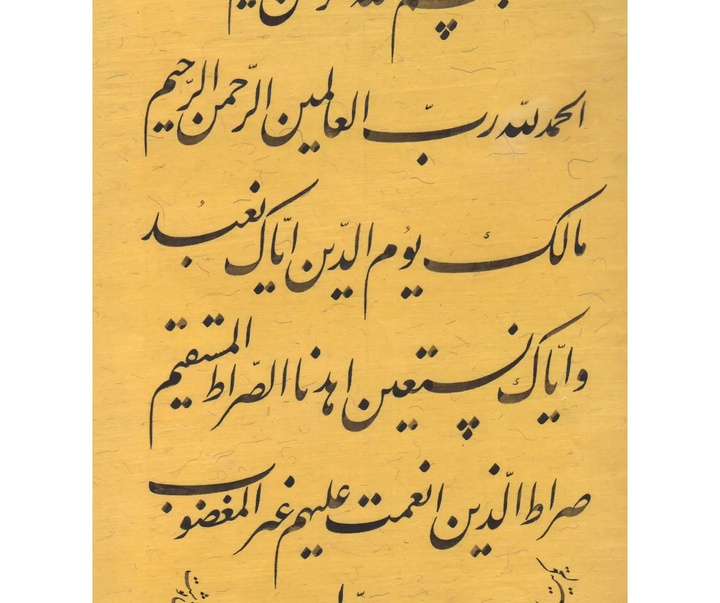 الحمد لله ربّ العالمين الرّحمن الرّحيم
مالك يوم الدّين ايّاك نعبد
وايّاك نستعين اهدنا الصّراط المستقيم
صراط الّذين انعمت عليهم غير المغضوب